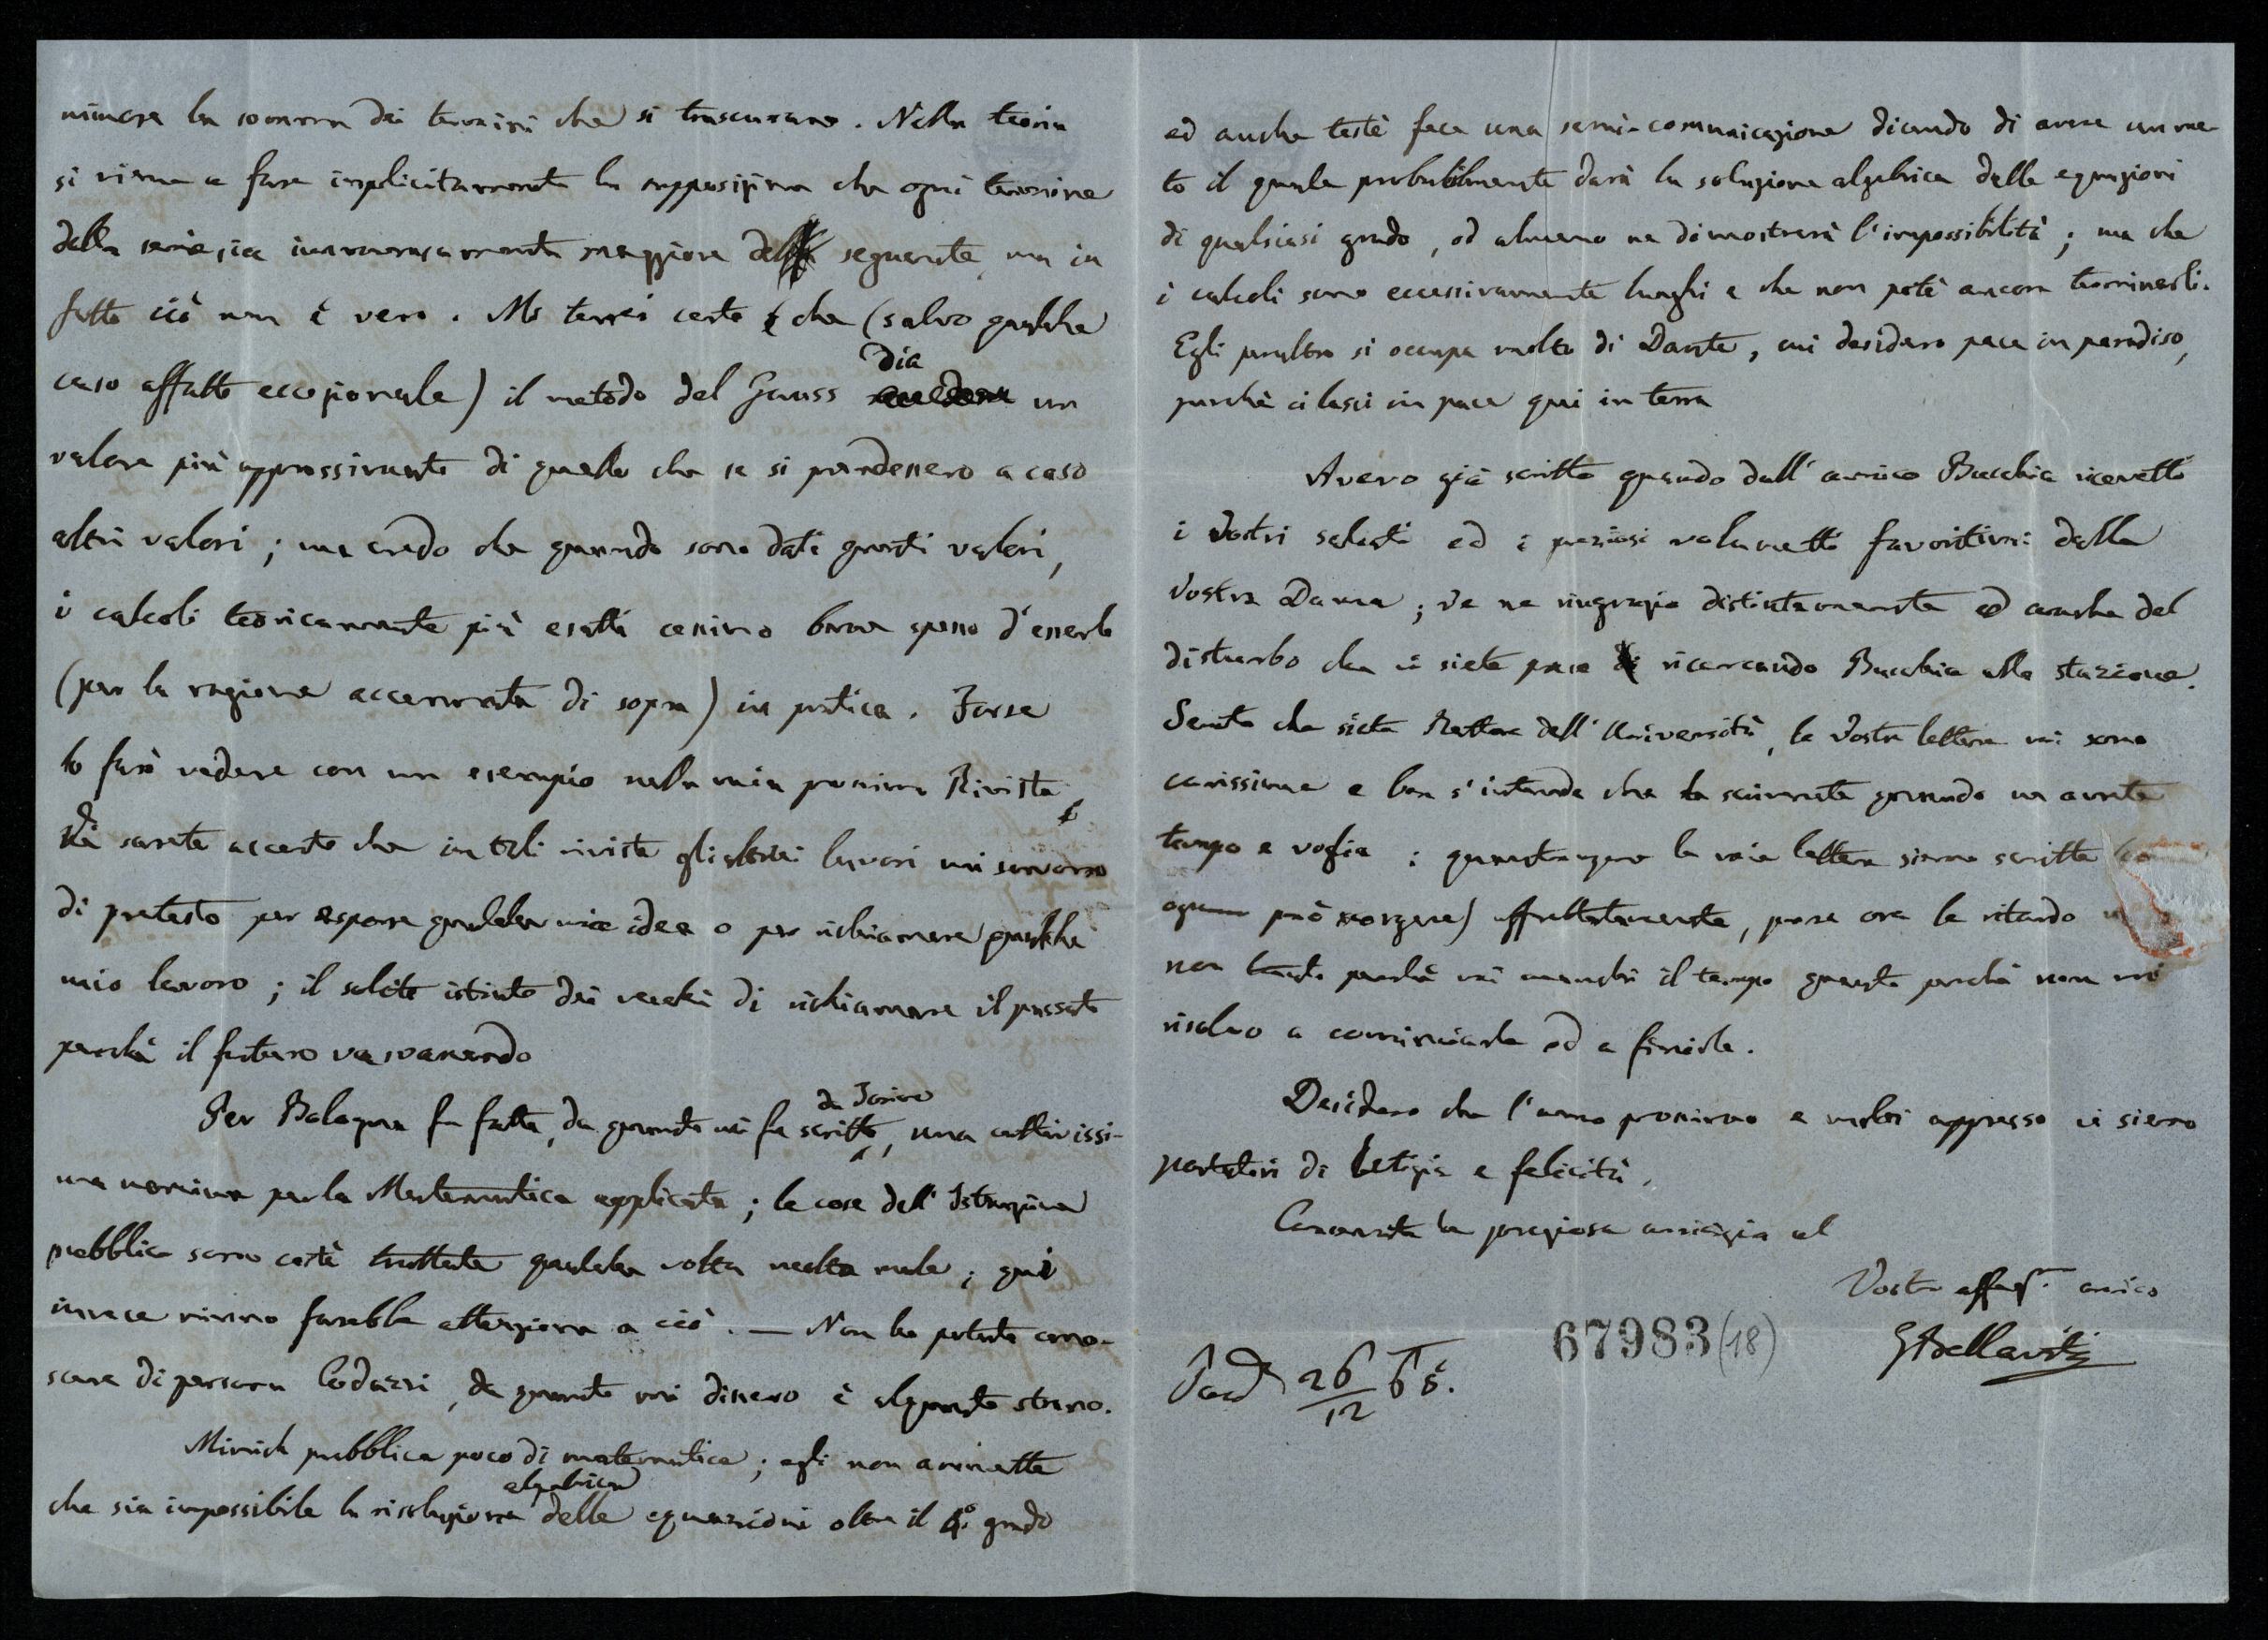 nimare la somma dei termini che si trascurano. Nella teoria
si viene a fare implicitamente la supposizione che ogni termine
della serie sia immensamente maggiore del seguente, ma in
fatto ciò non è vero. Mi terrei certo che (salvo qualche
caso affatto eccezionale) il metodo del Gauss dia un
valore più approssimante di quello che se si prendessero a caso
altri valori; ma credo che quando sono dati questi valori,
i calcoli teoricamente più esatti cessino bene spesso d'esserlo
(per la ragione accennata di sopra) in pratica. Forse
lo farò vedere con un esempio nella mia prossima Rivista,
Vi sarete accorto che in tali riviste gli altrui lavori mi servono
di pretesto per esporre qualche mia idea o per richiamare qualche
mio lavoro; il solito istinto dei vecchi di richiamare il passato
perchè il futuro va svanendo
Per Bologna fu fatta, da quanto mi fu scritto da Torino, una cattivissi-
ma nomina per la Matematica applicata; le cose dell'Istruzione
pubblica sono costì trattate qualche volta molto male; qui
invece niuno farebbe attenzione a ciò. — Non ho potuto cono-
scere di persona Codazzi, da quanto mi dissero è alquanto strano.
Minich pubblica poco di matematica; egli non ammette
che sia impossibile la risoluzione algebrica delle equazioni oltre il 4.° grado
ed anche testè fece una semi-comunicazione dicendo di avere un me-
to il quale probabilmente darà la soluzione algebrica delle equazioni
di qualsiasi grado, od almeno ne dimostrerà l'impossibilità; ma che
i calcoli sono eccessivamente lunghi e che non potè ancora terminarli.
Egli peraltro si occupa molto di Dante, cui desidero pace in paradiso,
purchè ci lasci in pace qui in terra
Avevo già scritto quando dall'amico Bucchia ricevetti
i vostri saluti ed i preziosi volumetti favoritimi dalla
vostra Dama; ve ne ringrazio distintamente ed anche del
disturbo che vi siete preso ricercando Bucchia alla stazione.
Sento che siete Rettore dell'Università, le vostre lettere mi sono
carissime e ben s'intende che le scriverete quando ne avrete
tempo e voglia: quantunque le mie lettere sieno scritte
ognuno può scorgere) affrettatamente, pure ora le ritardo
non tanto perchè mi manchi il tempo quanto perchè non mi
risolvo a cominciarle ed a finirle.
Desidero che l'anno prossimo e molti appresso vi sieno
portatori di letizia e felicità.
Conservate la preziosa amicizia al
Vostro affez. amico
GBellavitis
67983(18)
Pad 26/12 65.